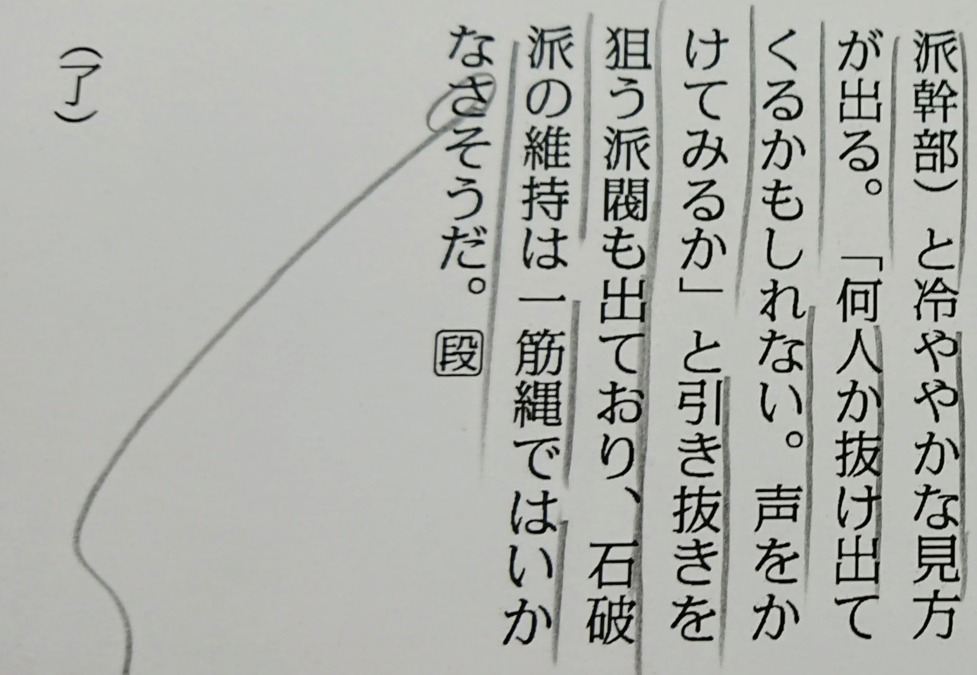 派幹部）と冷ややかな見方
が出る。「何人か抜け出て
くるかもしれない。声をか
けてみるか」と引き抜きを
狙う派閥も出ており、石破
派の維持は一筋縄ではいか
なさそうだ。段
（了）